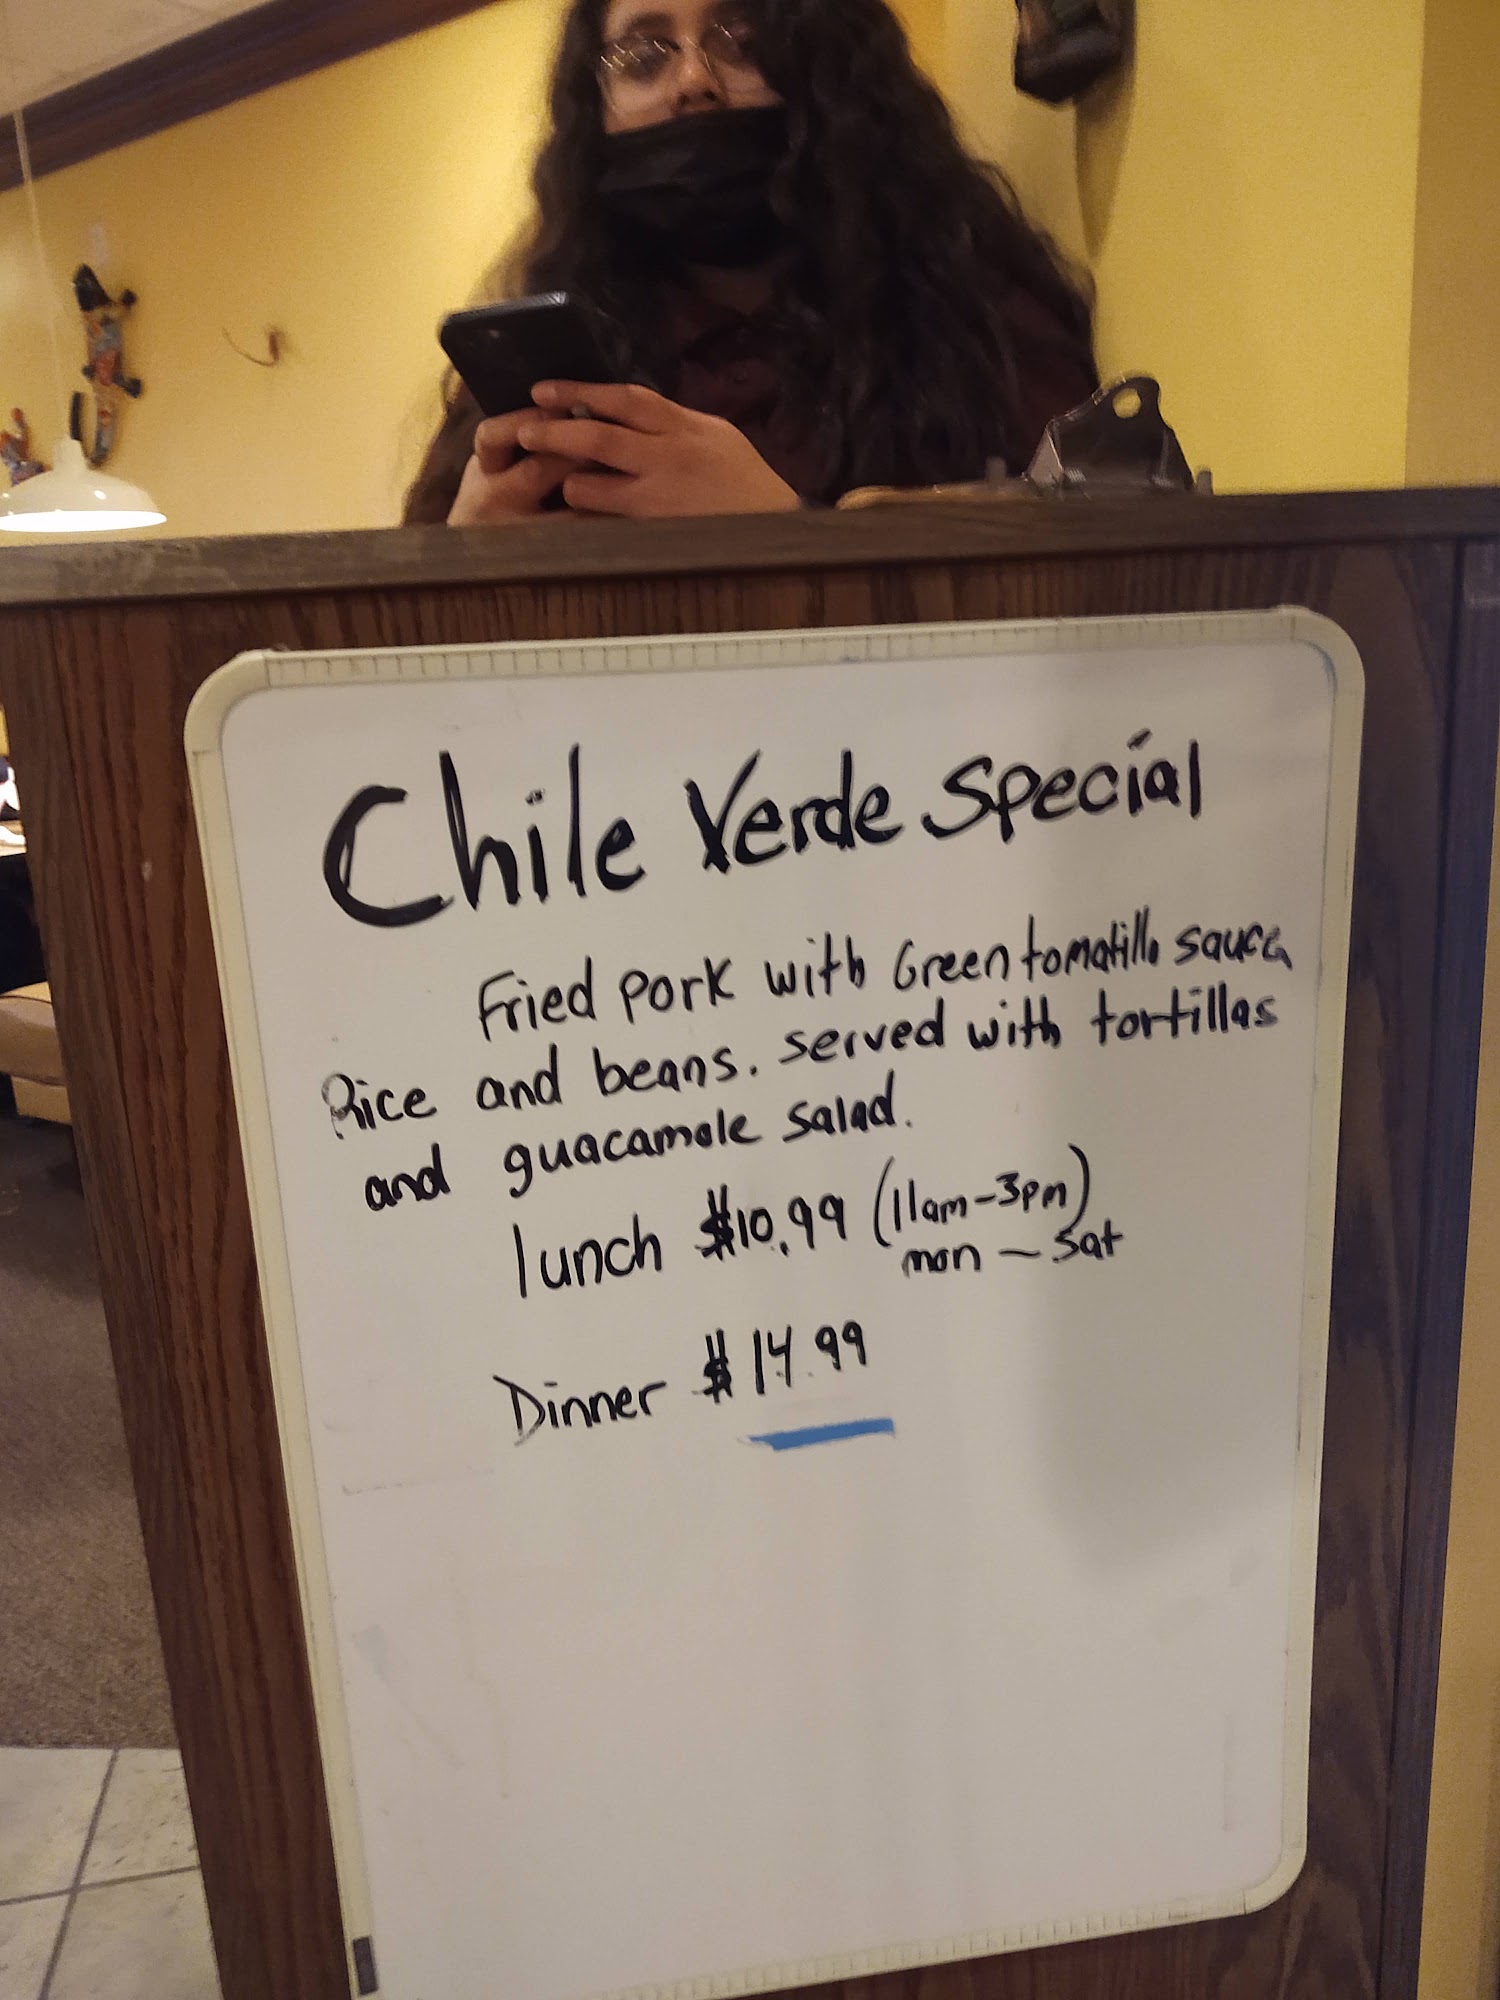 Chile Verde Special
Fried pork with Green tomatillo sauce
Rice and beans. served with tortillas
and guacamole salad.
lunch $10.99 (11am-3pm)
mon - Sat
Dinner $14.99